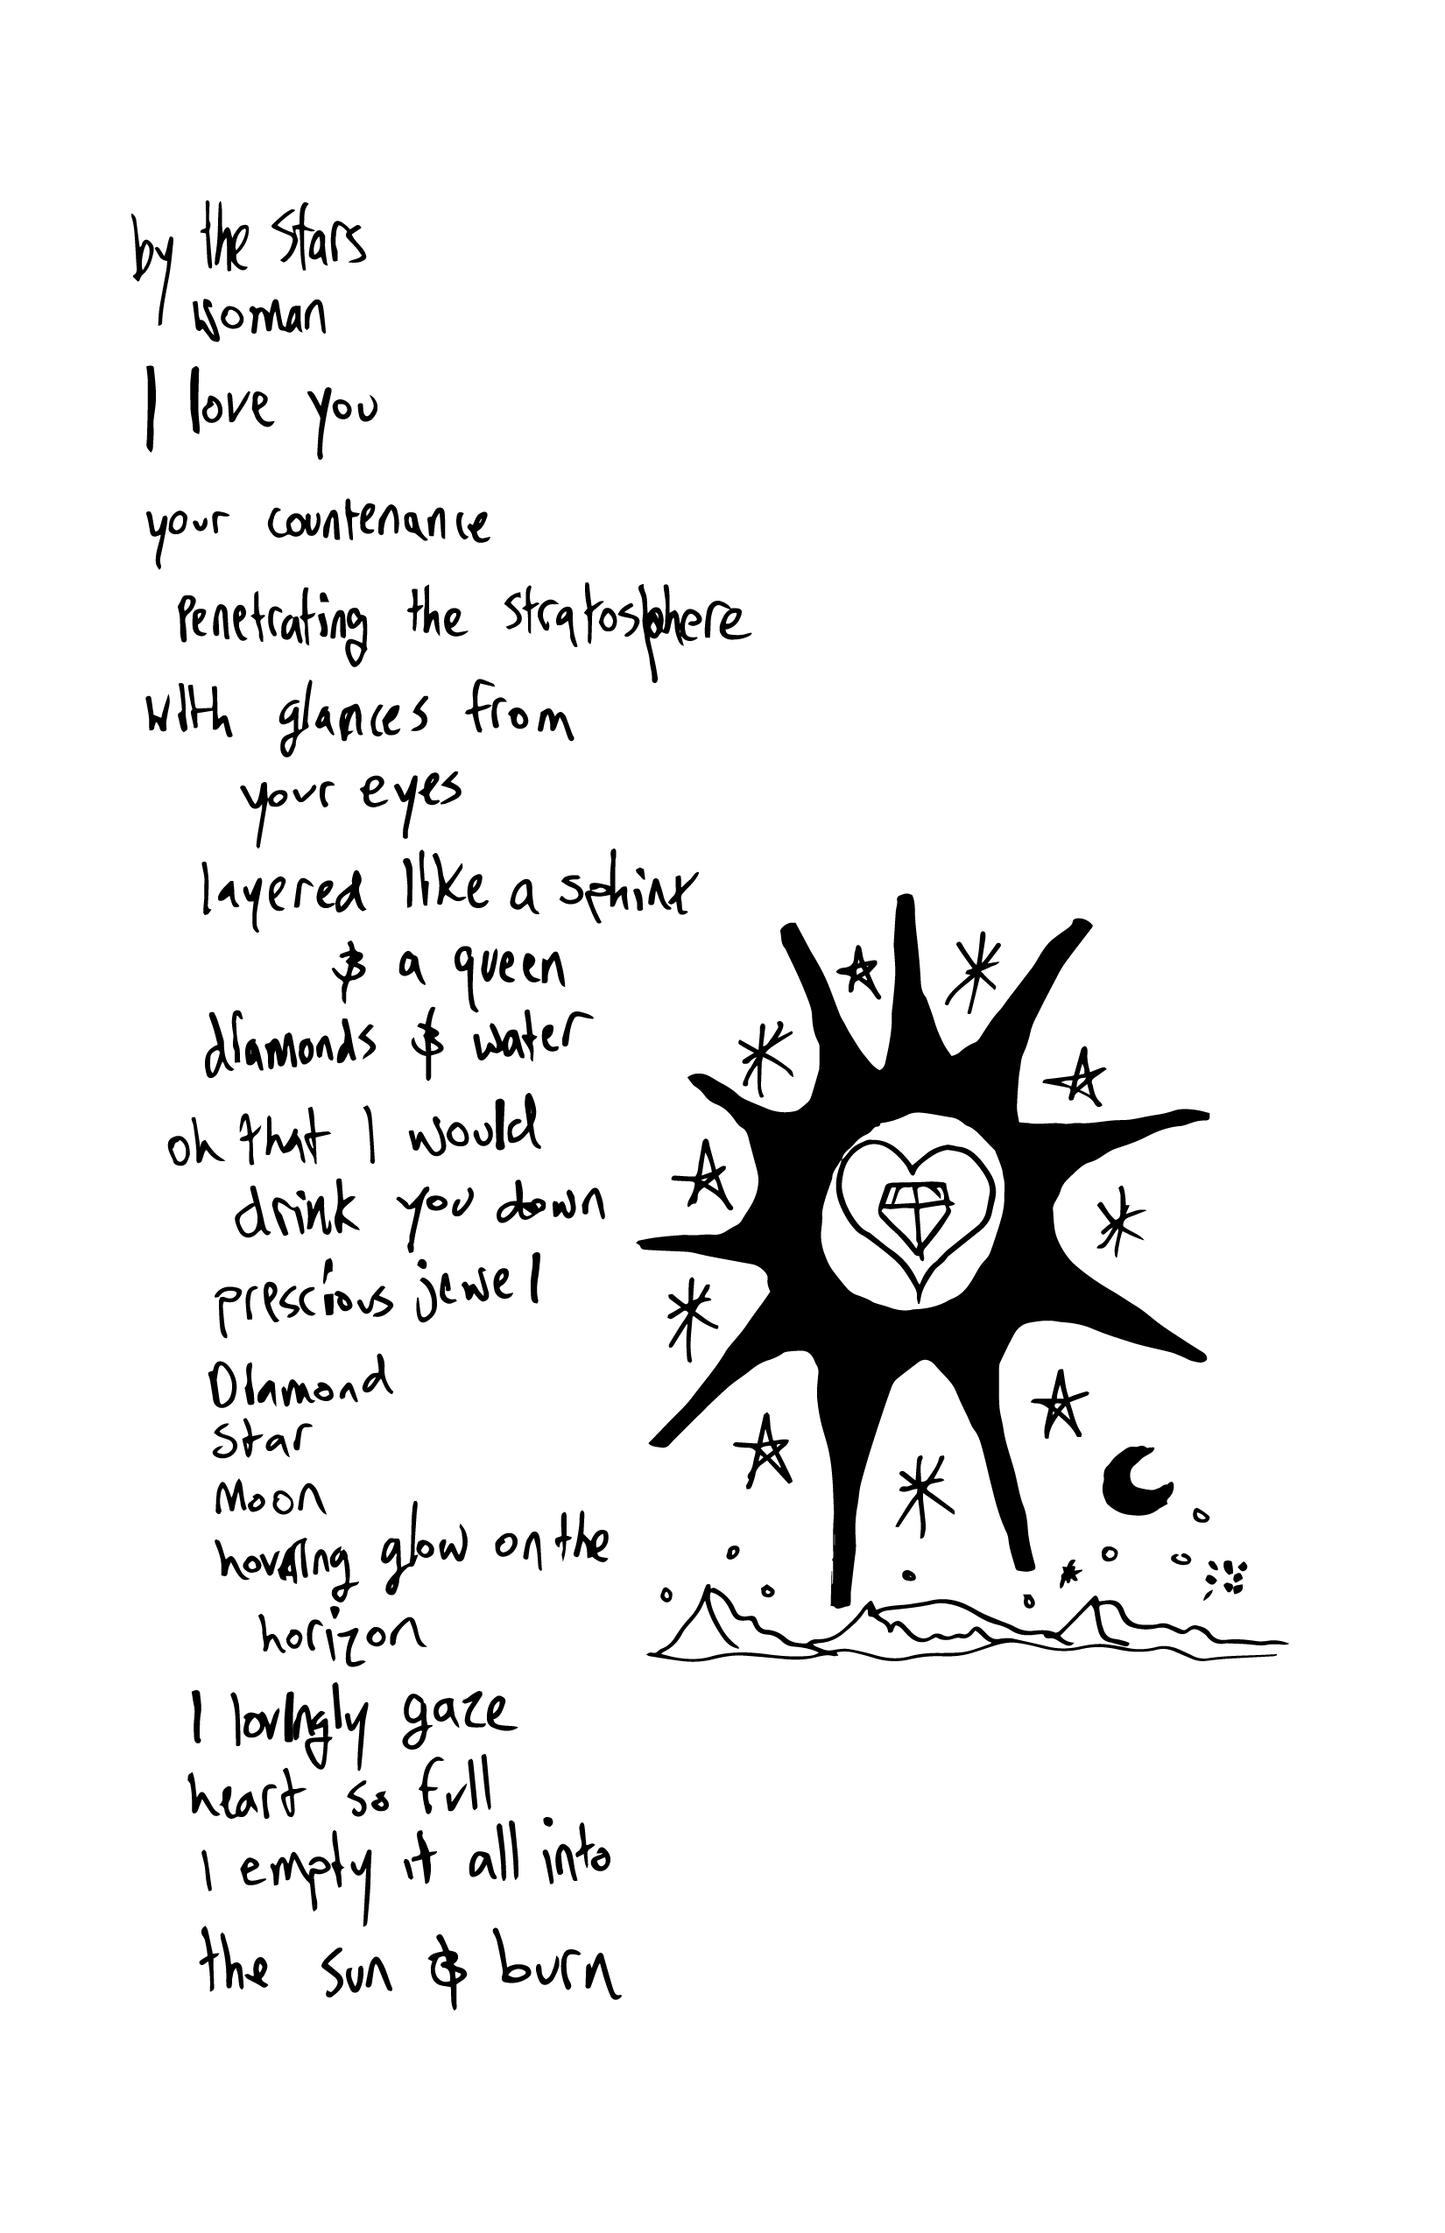 by the stars
woman
I love you
your countenance
Penetrating the stratosphere
with glances from
your eyes
layered like a sphinx
& a queen
diamonds & water
oh that I would
drink you down
prescious jewel
Diamond
Star
Moon
hovering glow on the
horizon
I lovingly gaze
heart so full
I empty it all into
the sun & burn